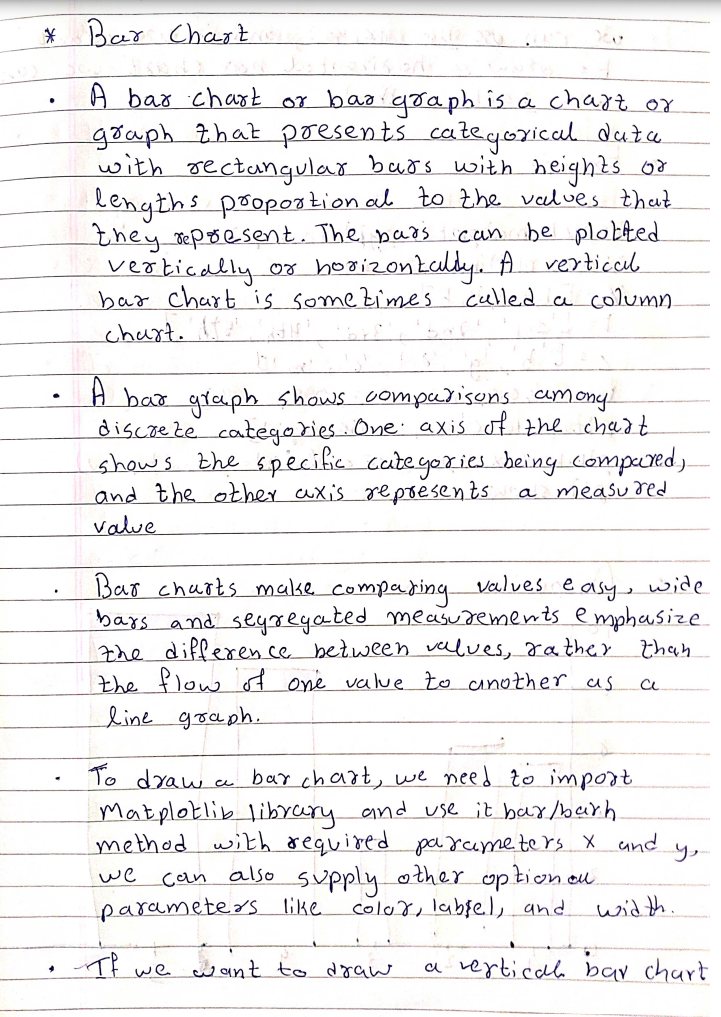 * Bar Chart
• A bar chart or bar graph is a chart or
graph that presents categorical data
with rectangular bars with heights or
lengths proportional to the values that
they represent. The bars can be plotted
vertically or horizontally. A vertical
bar chart is sometimes called a column
chart.
• A bar graph shows comparisons among
discrete categories. One axis of the chart
shows the specific categories being compared,
and the other axis represents a measured
value
• Bar charts make comparing values easy, wide
bars and segregated measurements emphasize
the difference between values, rather than
the flow of one value to another as a
line graph.
• To draw a bar chart, we need to import
Matplotlib library and use it bar/barh
method with required parameters x and y,
we can also supply other optional
parameters like color, label, and width.
• If we want to draw a vertical bar chart